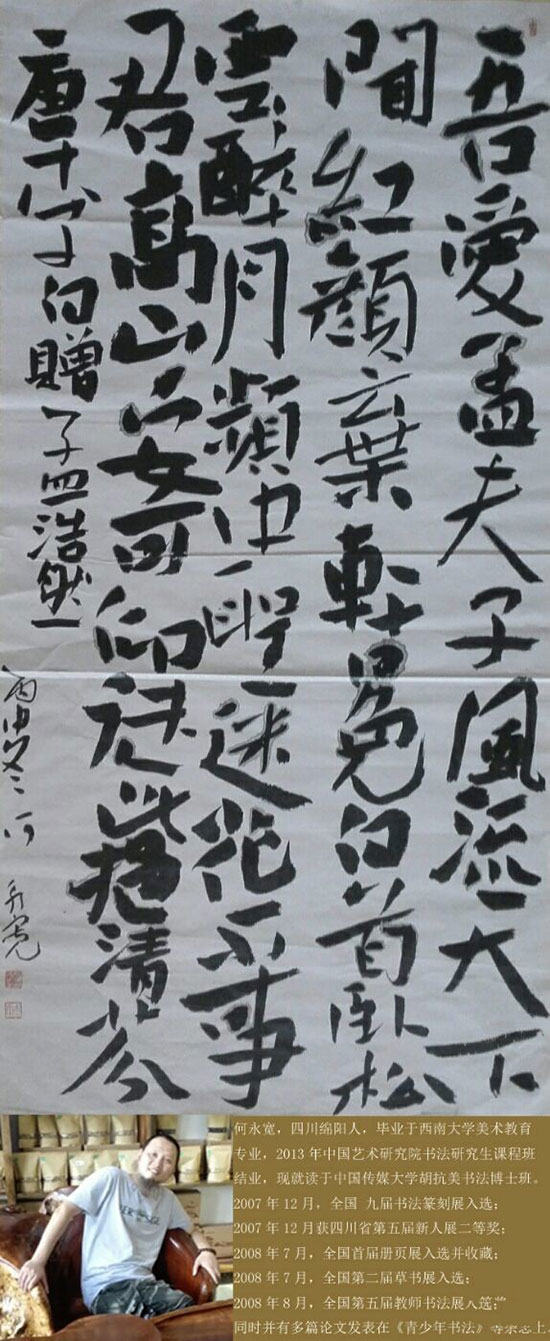 吾愛孟夫子風流天下
聞紅顏棄軒冕白首臥松
雲醉月頻中聖迷花不事
君高山安可仰徒此揖清芬
唐李白贈孟浩然
丙申冬何永寬
何永宽，四川绵阳人，毕业于西南大学美术教育
专业，2013年中国艺术研究院书法研究生课程班
结业，现就读于中国传媒大学胡抗美书法博士班。
2007年12月，全国 九届书法篆刻展入选；
2007年12月获四川省第五届新人展二等奖；
2008年7月，全国首届册页展入选并收藏；
2008年7月，全国第二届草书展入选；
2008年8月，全国第五届教师书法展入选
同时并有多篇论文发表在《青少年书法》等杂志上